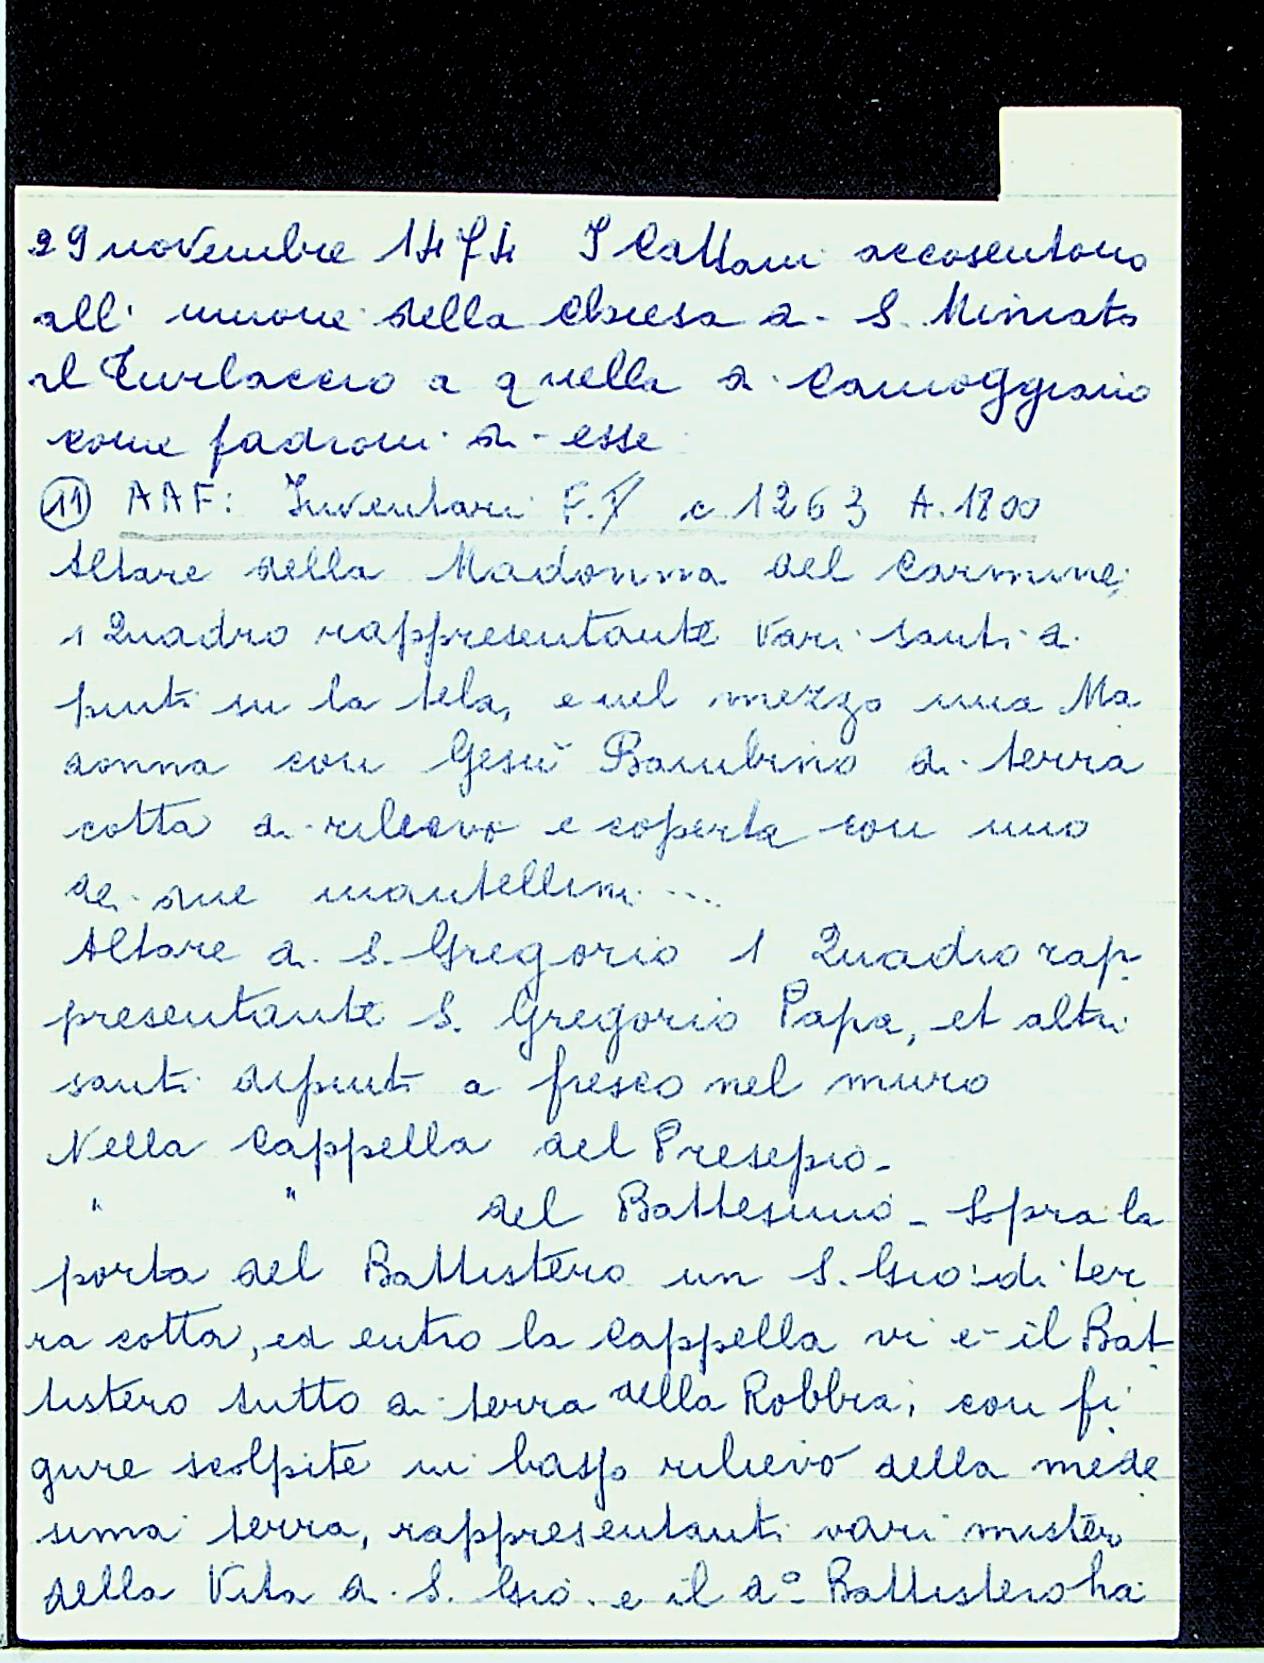 29 novembre 1474 I Cattani accosentono
all' unione della chiesa di S. Miniato
al Turlaccio a quella di Camoggiano
come padroni di esse
(11) AAF: Inventari F. V c 1263 A. 1800
Altare della Madonna del Carmine,
1 Quadro rappresentante vari santi di
pinti su la tela, e nel mezzo una Ma
donna con Gesù Bambino di terra
cotta di rilievo e coperta con uno
de due mantellini ...
Altare di S. Gregorio 1 Quadro rap
presentante S. Gregorio Papa, et altri
santi dipinti a fresco nel muro
Nella Cappella del Presepio -
" " del Battesimo - Sopra la
porta del Battistero un S. Gio: di ter
ra cotta, ed entro la Cappella vi e il Bat
tistero tutto di terra della Robbia, con fi
gure scolpite in basso rilievo della mede
sima terra, rappresentanti vari misteri
della Vita di S. Gio. e il dº Battistero ha